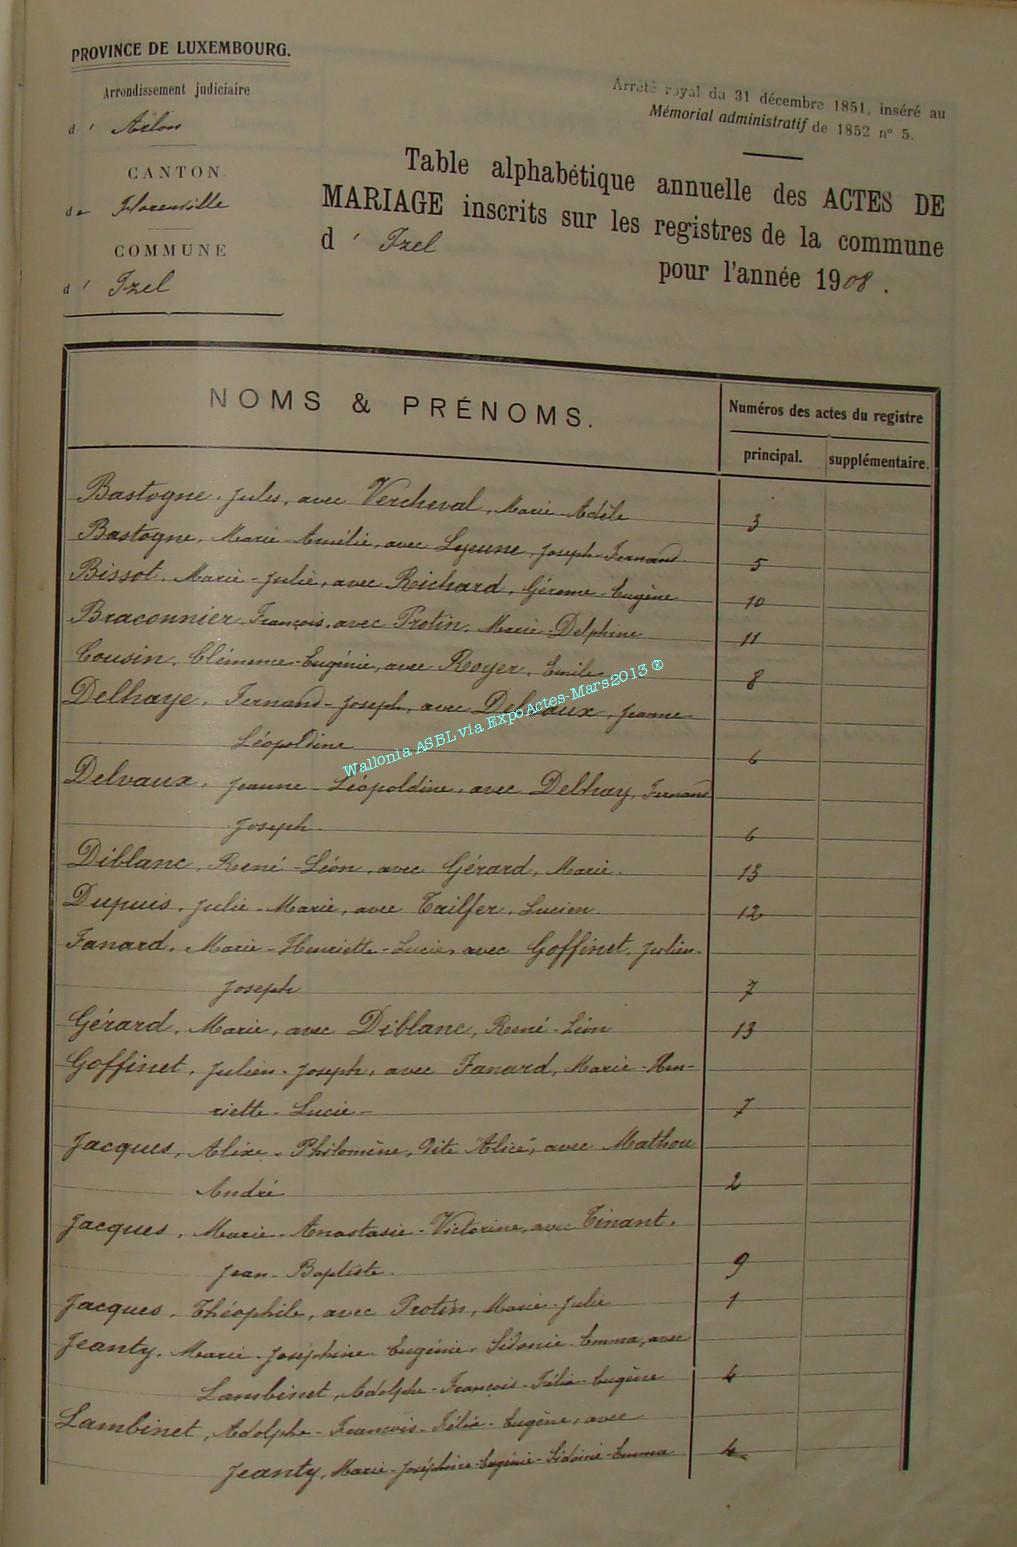 PROVINCE DE LUXEMBOURG.
Arrondissement judiciaire
d' Arlon
CANTON
de Florenville
COMMUNE
d' Izel
Arrêté royal du 31 décembre 1851, inséré au
Mémorial administratif de 1852 n° 5.
Table alphabétique annuelle des ACTES DE
MARIAGE inscrits sur les registres de la commune
d' Izel
pour l'année 1908.
NOMS & PRÉNOMS.
Numéros des actes du registre
principal. supplémentaire.
Bastogne, Jules, avec Vercheval, Marie-Adèle 3
Bastogne, Marie-Amélie, avec Lejeune, Joseph-Fernand 5
Bissot, Marie-Julie, avec Richard, Gérome-Eugène 10
Braconnier François, avec Protin, Marie-Delphine 11
Cousin, Clémence-Eugénie, avec Royer, Emile 8
Delhaye, Fernand-Joseph, avec Delvaux, Jeanne
Léopoldine 6
Wallonia ASBL via ExpoActes-Mars2013 ®
Delvaux, Jeanne-Léopoldine, avec Delhay, Fernand
Joseph 6
Diblanc, René-Léon, avec Gérard, Marie. 13
Dupuis, Julie-Marie, avec Tailfer, Lucien. 12
Fanard, Marie-Henriette-Lucie, avec Goffinet, Julien-
Joseph 7
Gérard, Marie, avec Diblanc, René-Léon 13
Goffinet, Julien-Joseph, avec Fanard, Marie-Hen-
riette-Lucie- 7
Jacques, Alixe-Philomène, dite "Alice", avec Mathou
André 2
Jacques, Marie-Anastasie-Victorine, avec Tinant,
Jean-Baptiste. 9
Jacques, Théophile, avec Protin, Marie-Julie 1
Jeanty, Marie-Joséphine-Eugénie-Sidonie-Emma, avec
Lambinet, Adolphe-François-Félix-Eugène 4
Lambinet, Adolphe-François-Félix-Eugène, avec
Jeanty, Marie-Joséphine-Eugénie-Sidonie-Emma 4